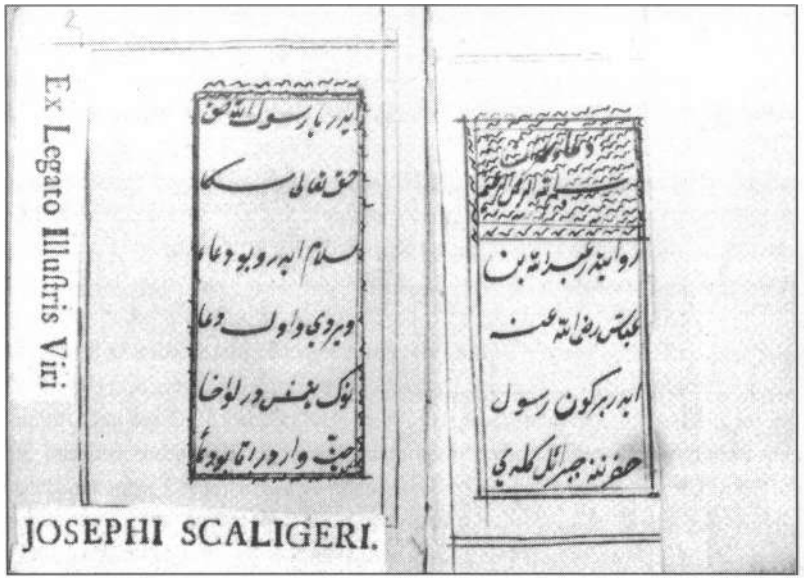 2
Ex Legato Illuſtris Viri
JOSEPHI SCALIGERI.
بسم الله الرحمن الرحيم
روايتدر عبد الله بن
عباس رضى الله عنه
ايدر بركون رسول
حضرتنه جبرائل كلدي
ايدر يا رسول الله حق
حق تعالى سكا
سلام ايدر و بو دعاء
ويردي و اول دعا
نوك در لو
وار در بو دعا